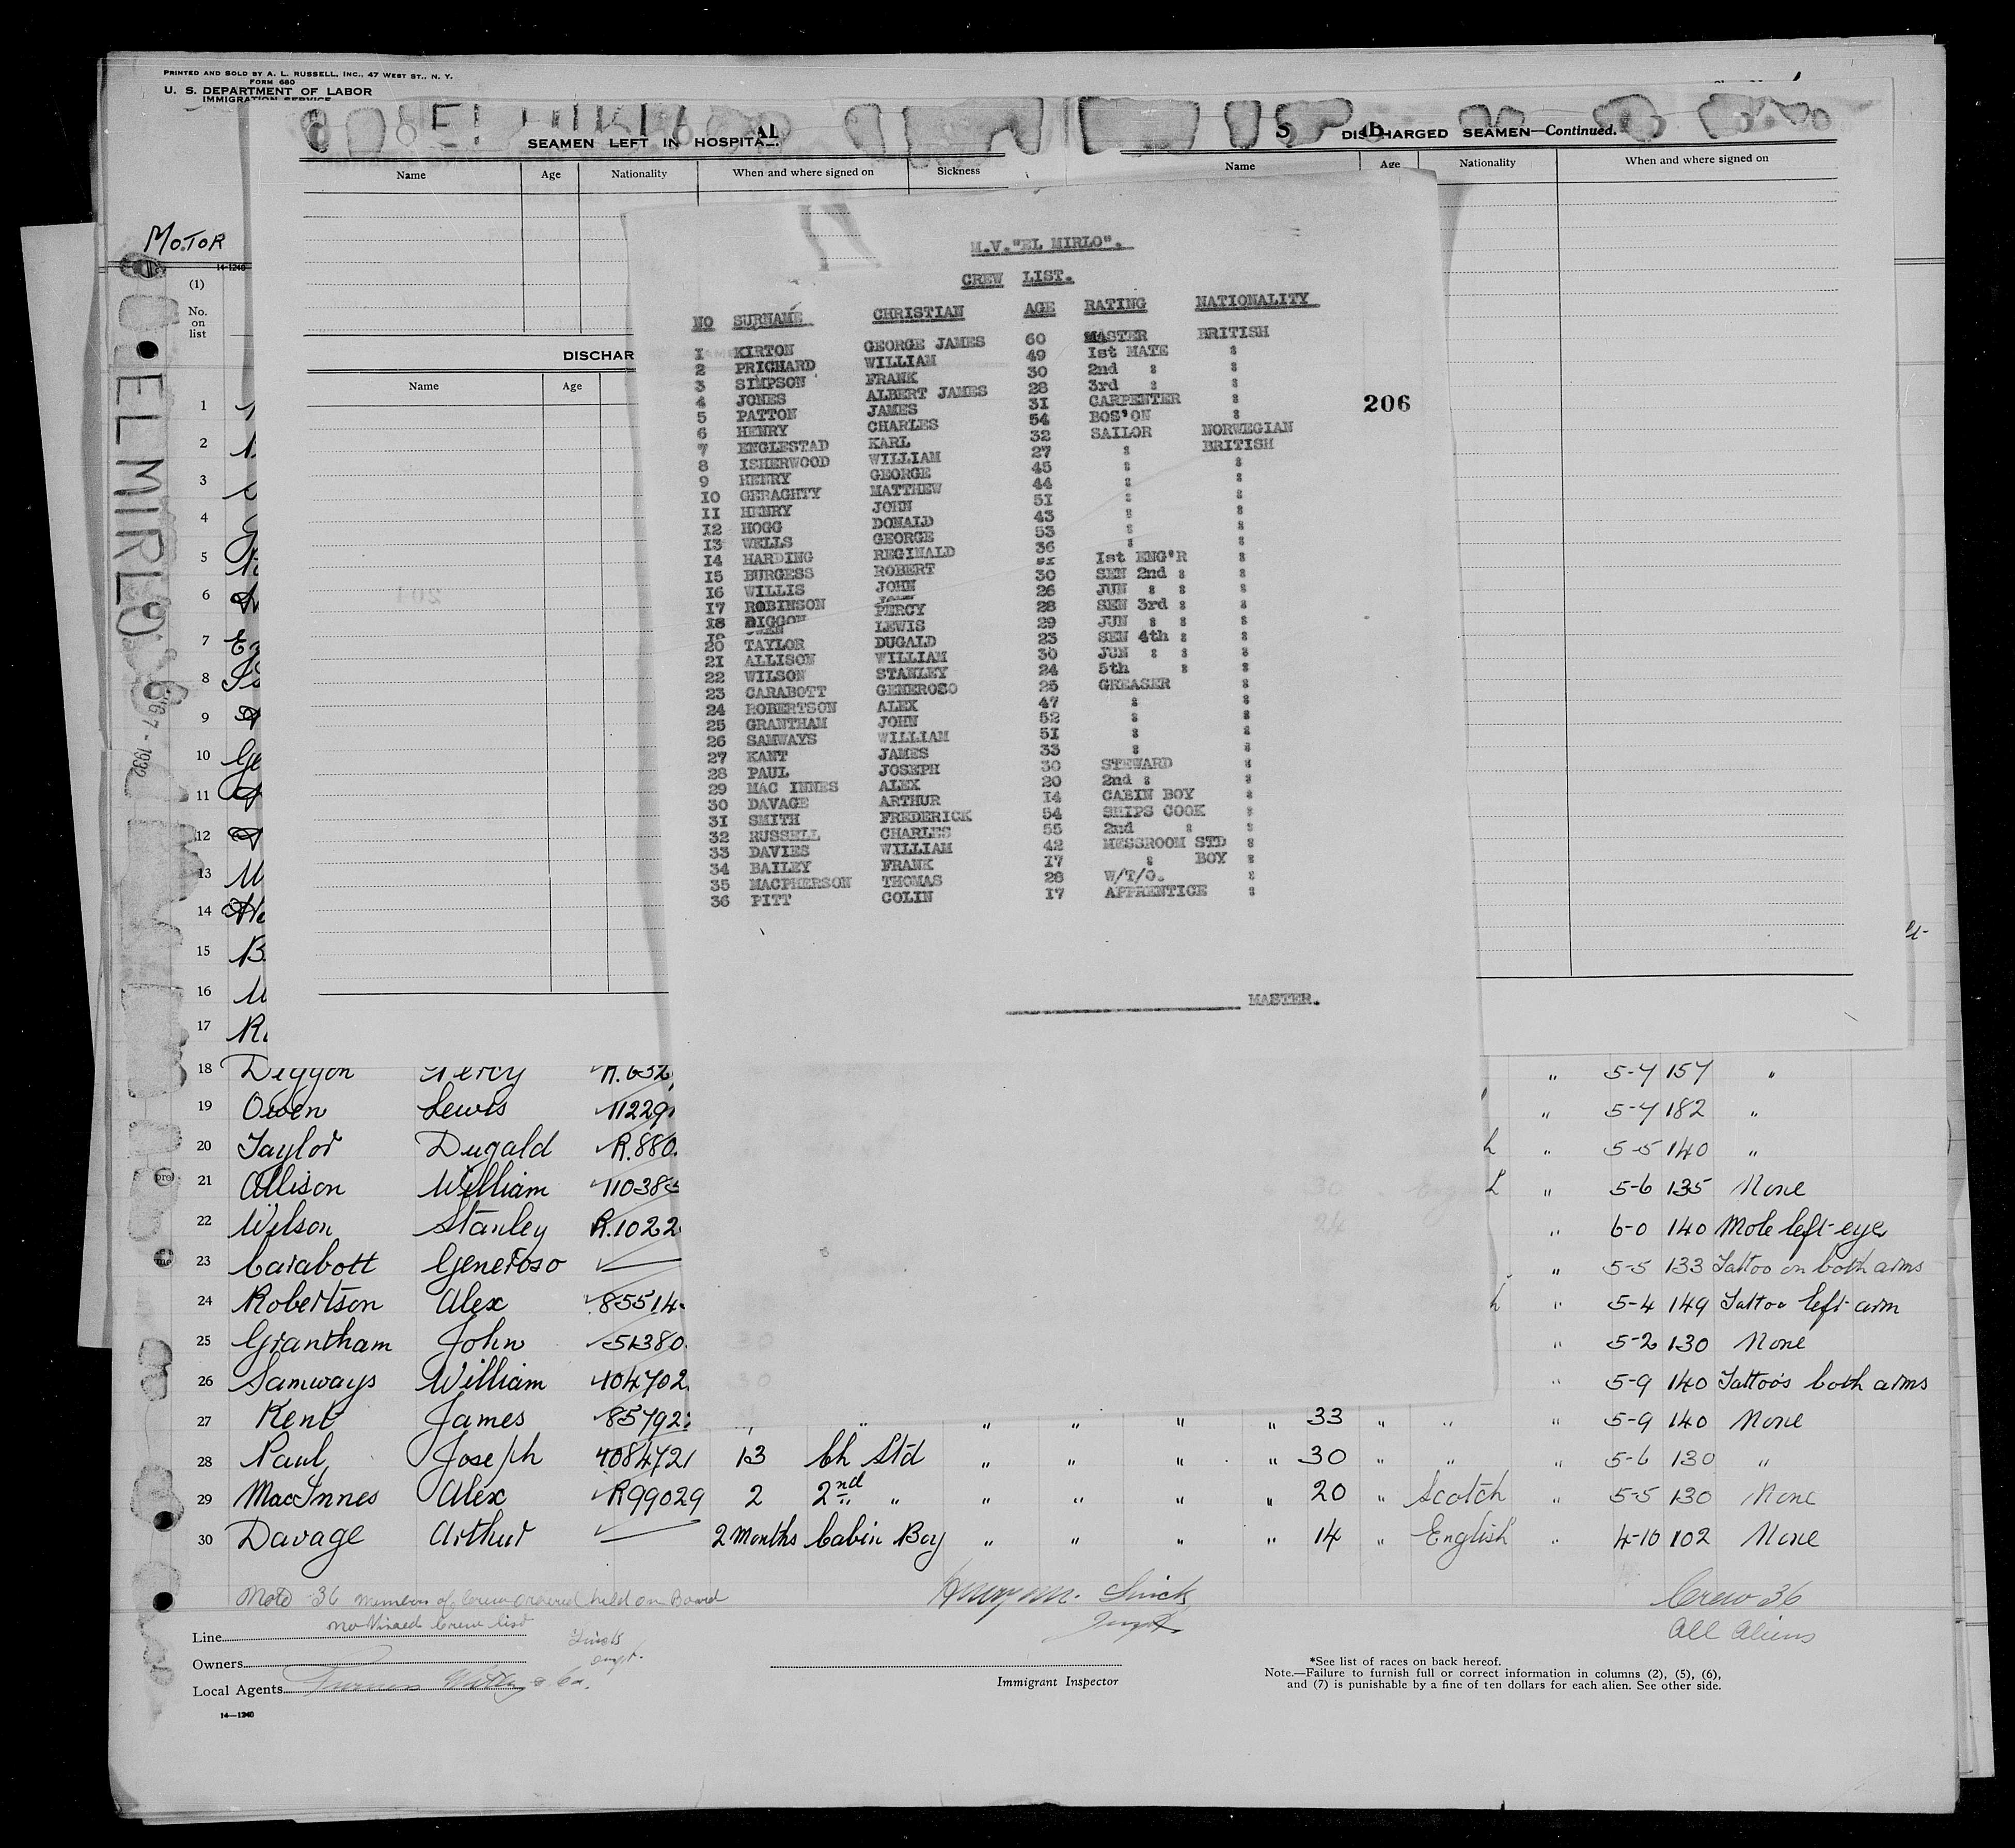 PRINTED AND SOLD BY A. L. RUSSELL, INC., 47 WEST ST., N. Y.
FORM 680
U. S. DEPARTMENT OF LABOR
IMMIGRATION SERVICE
MOTOR
14-1240
(1)
No.
on
list
EL MIRLO
6/67-1932
SEAMEN LEFT IN HOSPITAL
Name Age Nationality When and where signed on Sickness
DISCHARGED SEAMEN—Continued.
Name Age Nationality When and where signed on
DISCHAR
Name Age
M.V."EL MIRLO".
CREW LIST.
NO SURNAME CHRISTIAN AGE RATING NATIONALITY
1 KIRTON GEORGE JAMES 60 MASTER BRITISH
2 PRICHARD WILLIAM 49 1st MATE "
3 SIMPSON FRANK 30 2nd " "
4 JONES ALBERT JAMES 28 3rd " "
5 PATTON JAMES 31 CARPENTER "
6 HENRY CHARLES 54 BOS'ON "
7 ENGLESTAD KARL 32 SAILOR NORWEGIAN
8 ISHERWOOD WILLIAM 27 " BRITISH
9 HENRY GEORGE 45 " "
10 GERAGHTY MATTHEW 44 " "
11 HENRY JOHN 51 " "
12 HOGG DONALD 43 " "
13 WELLS GEORGE 53 " "
14 HARDING REGINALD 36 1st ENG'R "
15 BURGESS ROBERT SEN 2nd " "
16 WILLIS JOHN 30 JUN " " "
17 ROBINSON 26 SEN 3rd " "
18 DIGGON PERCY 28 JUN " " "
19 OWEN LEWIS 29 SEN 4th " "
20 TAYLOR DUGALD 23 JUN " " "
21 ALLISON WILLIAM 30 5th " "
22 WILSON STANLEY 24
23 CARABOTT GENEROSO 25 GREASER "
24 ROBERTSON ALEX 47 " "
25 GRANTHAM JOHN 52 " "
26 SAMWAYS WILLIAM 51 " "
27 KANT JAMES 33 " "
28 PAUL JOSEPH 30 STEWARD "
29 MAC INNES ALEX 20 2nd " "
30 DAVAGE ARTHUR 14 CABIN BOY "
31 SMITH FREDERICK 54 SHIPS COOK "
32 RUSSELL CHARLES 55 2nd " "
33 DAVIES WILLIAM 42 MESSROOM STD "
34 BAILEY FRANK 17 " BOY "
35 MACPHERSON THOMAS 28 W/T/O. "
36 PITT COLIN 17 APPRENTICE "
206
MASTER.
1
2
3
4
5
6
7
8
9
10
11
12
13
14
15
16
17
18 Diggon Percy R.632 " 5-7 157 "
19 Owen Lewis 11229 " 5-7 182 "
20 Taylor Dugald R.880 " 5-5 140 "
21 Allison William 11038 " 5-6 135 None
22 Wilson Stanley R.1022 " 6-0 140 Mole left eye
23 Carabott Generoso " 5-5 133 Tattoo on both arms
24 Robertson Alex 85514 " 5-4 149 Tattoo left arm
25 Grantham John 51380 " 5-2 130 None
26 Samways William 104702 " 5-9 140 Tattoos both arms
27 Kent James 85792 " " " " " " 33 " " " 5-9 140 None
28 Paul Joseph 1084721 13 Ch Std " " " " 30 " " " 5-6 130 "
29 MacInnes Alex R99029 2 2nd " " " " " 20 " Scotch " 5-5 130 None
30 Davage Arthur 2 Months Cabin Boy " " " " 14 " English " 4-10 102 None
Note 36 members of Crew ordered held on Board
no Visaed Crew list
Crew 36
All Aliens
Line
Owners
Local Agents Furness Withy & Co.
Immigrant Inspector
*See list of races on back hereof.
Note.—Failure to furnish full or correct information in columns (2), (5), (6),
and (7) is punishable by a fine of ten dollars for each alien. See other side.
14—1240